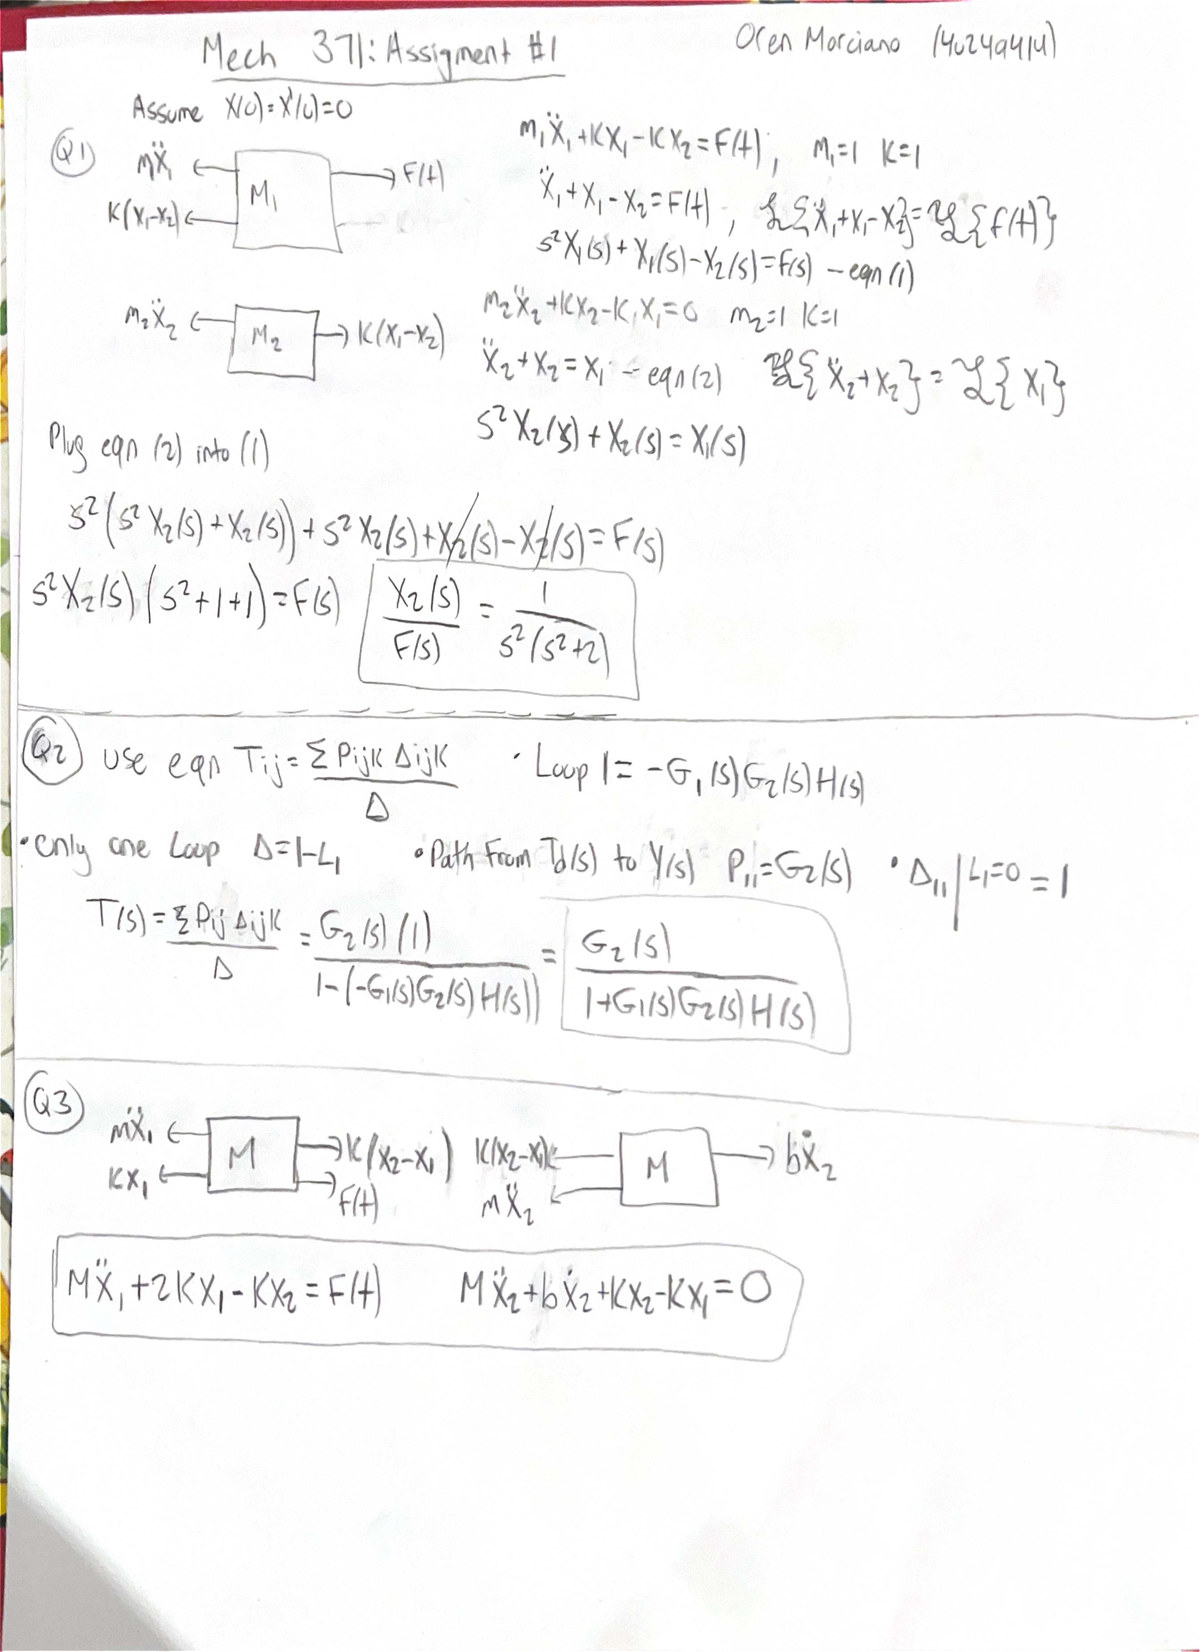 Mech 371: Assigment #1
Oren Morciano (40249414)
Assume X(0)=X'(0)=0
Q1
mẍ₁
K(x₁-x₂)
M₁
F(t)
m₁ẍ₁+Kx₁-Kx₂=F(t), m₁=1 K=1
ẍ₁+x₁-x₂=F(t), ℒ{ẍ₁+x₁-x₂}=ℒ{f(t)}
s²X₁(s)+X₁(s)-X₂(s)=F(s) - eqn (1)
m₂ẍ₂
M₂
K(x₁-x₂)
m₂ẍ₂+Kx₂-K,x₁=0 m₂=1 K=1
ẍ₂+x₂=x₁ - eqn (2) ℒ{ẍ₂+x₂}=ℒ{x₁}
s²X₂(s)+X₂(s)=X₁(s)
Plug eqn (2) into (1)
s²(s²X₂(s)+X₂(s))+s²X₂(s)+X₂(s)-X₂(s)=F(s)
s²X₂(s)(s²+1+1)=F(s) X₂(s)/F(s) = 1/s²(s²+2)
Q2 use eqn Tij=ΣPijk Δijk/Δ • Loop 1= -G₁(s)G₂(s)H(s)
• Only one Loop Δ=1-L₁ • Path From Td(s) to Y(s) P₁₁=G₂(s) • Δ₁₁|L₁=0 =1
T(s)=ΣPij Δijk/Δ = G₂(s)(1)/1-(-G₁(s)G₂(s)H(s)) = G₂(s)/1+G₁(s)G₂(s)H(s)
Q3
mẍ₁
Kx₁
M
K(x₂-x₁)
F(t)
K(x₂-x₁)
mẍ₂
M
bẋ₂
Mẍ₁+2Kx₁-Kx₂=F(t) Mẍ₂+bẋ₂+Kx₂-Kx₁=0